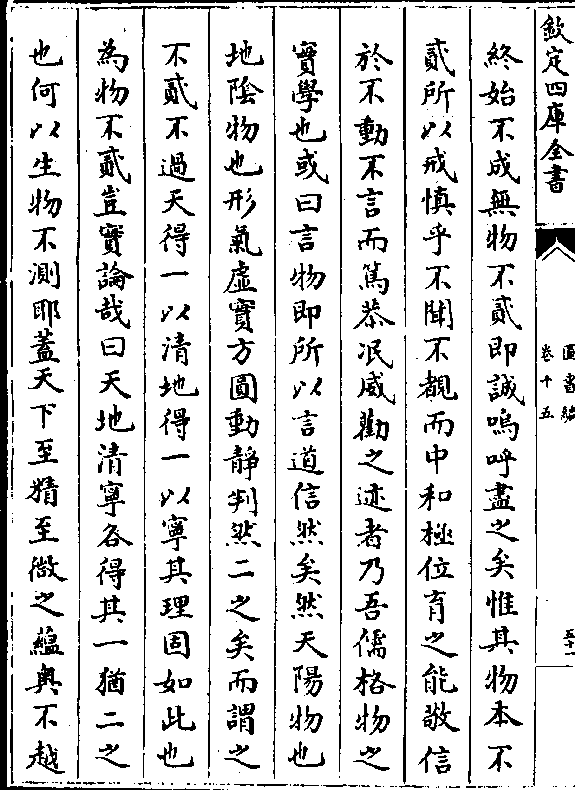 欽定四庫全書
圖書編
卷十五
五十一
終始不成無物不貳即誠嗚呼盡之矣惟其物本不
貳所以戒慎乎不聞不覩而中和極位育之能敬信
於不動不言而篤恭泯威勸之迹者乃吾儒格物之
實學也或曰言物即所以言道信然矣然天陽物也
地陰物也形氣虛實方圓動静判然二之矣而謂之
不貳不過天得一以清地得一以寧其理固如此也
為物不貳豈實論哉曰天地清寧各得其一猶二之
也何以生物不測耶蓋天下至精至微之蘊奥不越